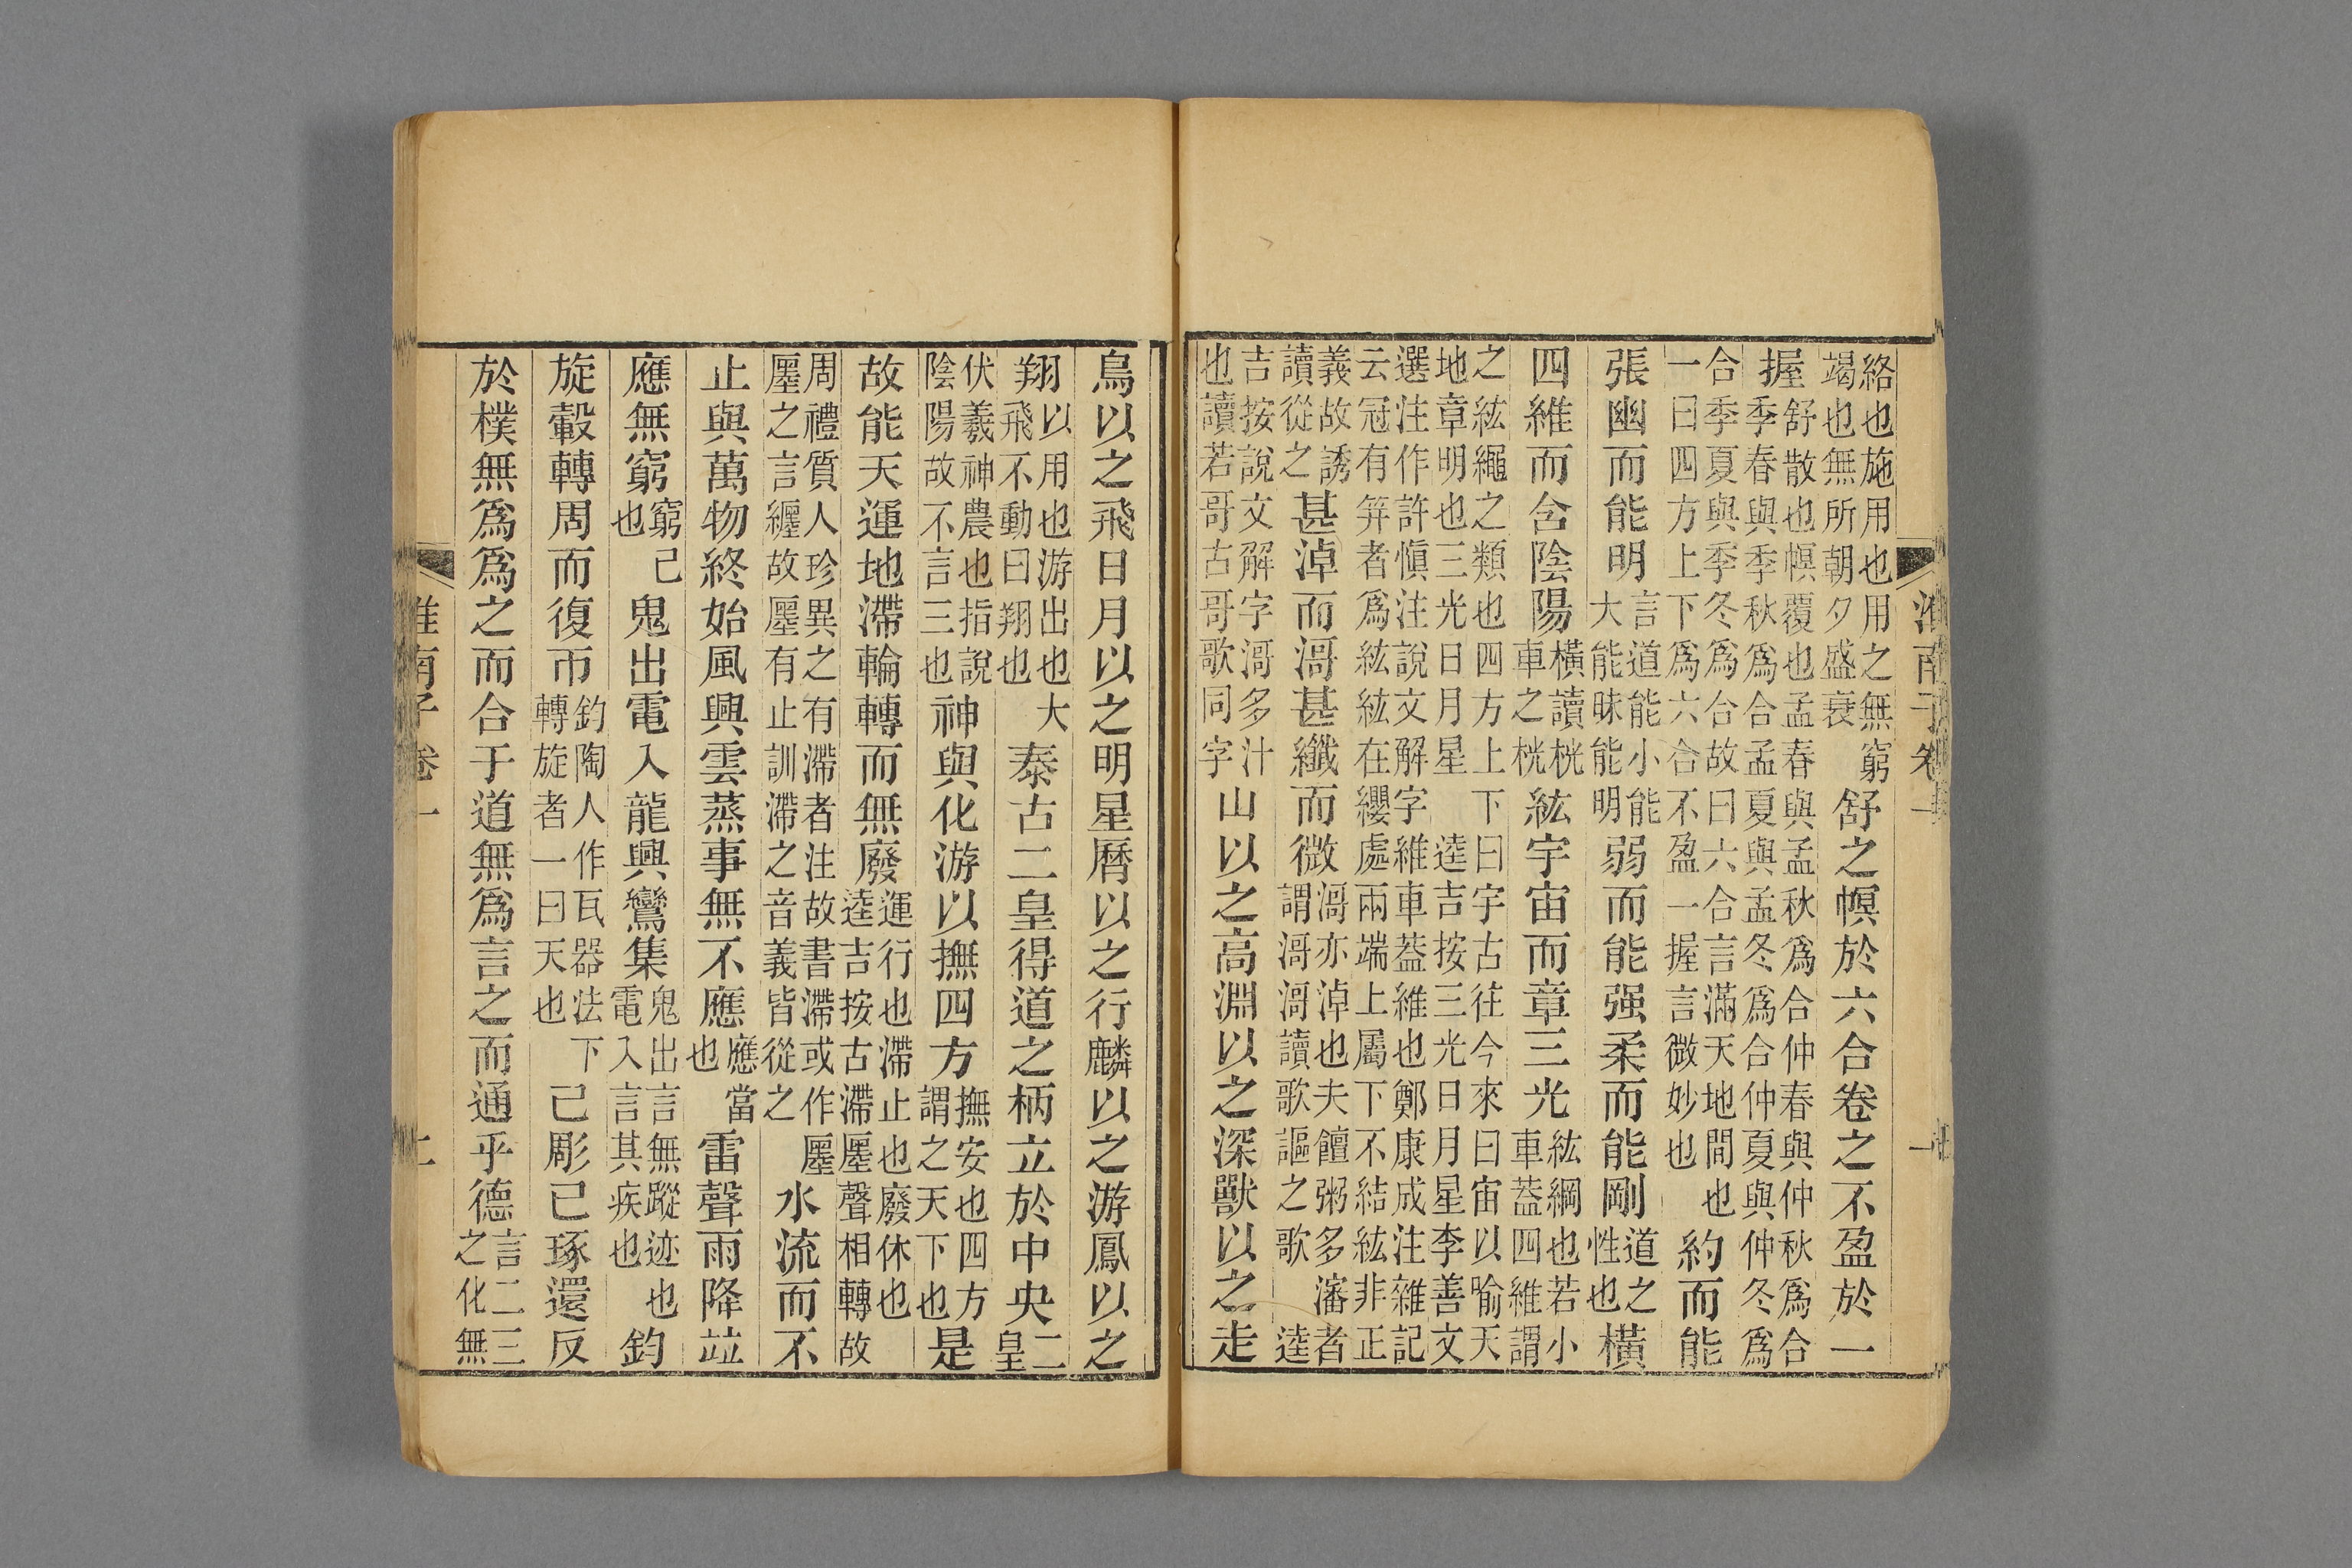 淮南子卷一
絡也施用也用之無窮竭也無所朝夕盛衰舒之幎於六合卷之不盈於一
握舒散也幎覆也孟春與孟秋爲合仲春與仲秋爲合季春與季秋爲合孟夏與孟冬爲合仲夏與仲冬爲
合季夏與季冬爲合故曰六合言滿天地間也一曰四方上下爲六合不盈一握言微妙也約而能
張幽而能明言道能小能大能昧能明弱而能强柔而能剛道之性也橫
四維而含陰陽橫讀桄車之桄紘宇宙而章三光紘綱也若小車蓋四維謂
之紘繩之類也四方上下曰宇古往今來曰宙以喻天地章明也三光日月星逵吉按三光日月星李善文
選注作許慎注說文解字維車蓋維也鄭康成注雜記云冠有笄者爲紘紘在纓處兩端上屬下不結紘非正
義故誘讀從之甚淖而滒甚纖而微滒亦淖也夫饘粥多瀋者謂滒滒讀歌謳之歌逵
吉按說文解字滒多汁也讀若哥古哥歌同字山以之高淵以之深獸以之走
鳥以之飛日月以之明星曆以之行麟以之游鳳以之
翔以用也游出也大飛不動曰翔也泰古二皇得道之柄立於中央二皇
伏羲神農也指說陰陽故不言三也神與化游以撫四方撫安也四方謂之天下也是
故能天運地滯輪轉而無廢運行也滯止也廢休也逵吉按古滯㕓聲相轉故
周禮質人珍異之有滯者注故書滯或作㕓㕓之言纏故㕓有止訓滯之音義皆從之水流而不
止與萬物終始風興雲蒸事無不應應當也雷聲雨降竝
應無窮窮已也鬼出電入龍興鸞集鬼出言無蹤迹也電入言其疾也鈞
旋轂轉周而復帀鈞陶人作瓦器法下轉旋者一曰天也已彫已琢還反
於樸無爲爲之而合于道無爲言之而通乎德言二三之化無
淮南子卷一